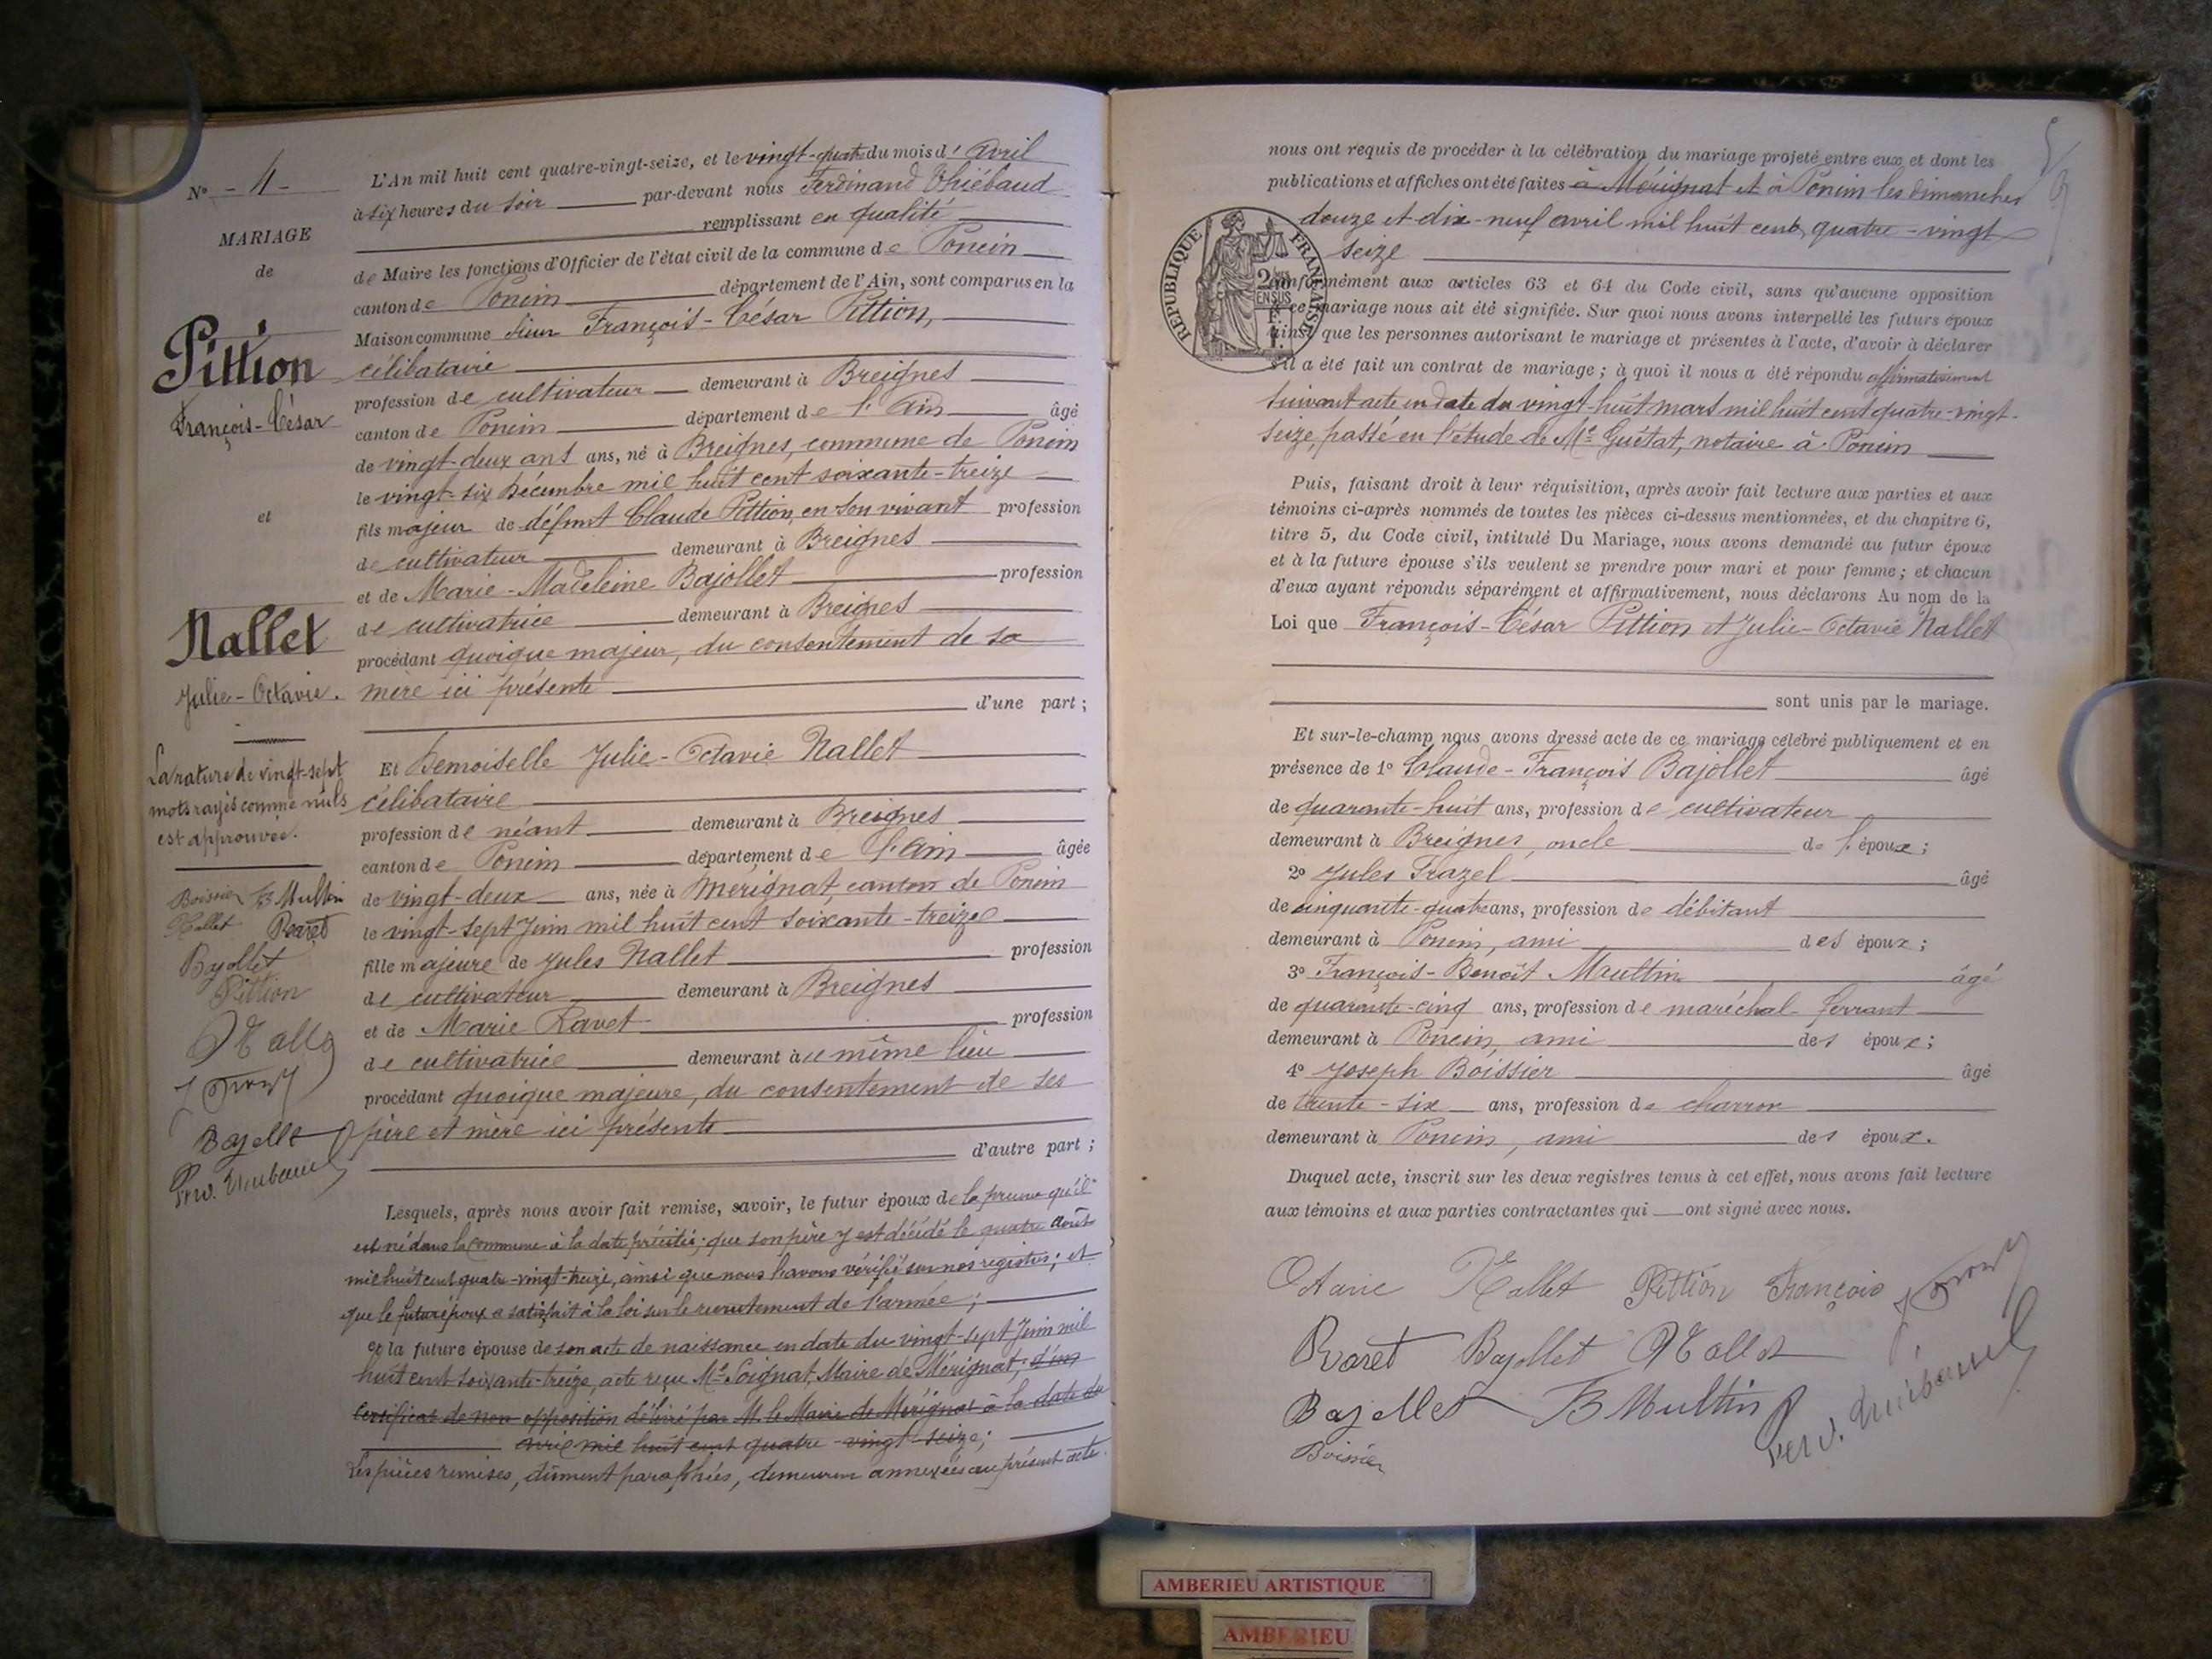 N° - 4 -
MARIAGE
de
Pittion
François-César
et
Nallet
Julie-Octavie.
La rature de vingt-sept
mots rayés comme nuls
est approuvée.
Boissier B Multin
Nallet Ravet
Bajollet
Pittion
Bajollet
L'An mil huit cent quatre-vingt-seize, et le vingt-quatre du mois d'Avril
à six heures du soir par-devant nous Ferdinand Thiébaud
remplissant en qualité
de Maire les fonctions d'Officier de l'état civil de la commune de Poncin
canton de Poncin département de l'Ain, sont comparus en la
Maison commune Sieur François-César Pittion,
célibataire
profession de cultivateur demeurant à Breignes
canton de Poncin département de l'Ain âgé
de vingt-deux ans ans, né à Breignes, commune de Poncin
le vingt-six Décembre mil huit cent soixante-treize
fils majeur de défunt Claude Pittion, en son vivant profession
de cultivateur demeurant à Breignes
et de Marie-Madeleine Bajollet profession
de cultivatrice demeurant à Breignes
procédant quoique majeur, du consentement de sa
mère ici présente
d'une part ;
Et Demoiselle Julie-Octavie Nallet
célibataire
profession de néant demeurant à Breignes
canton de Poncin département de l'Ain âgée
de vingt-deux ans, née à Mérignat, canton de Poncin
le vingt-sept Juin mil huit cent soixante-treize
fille majeure de Jules Nallet profession
de cultivateur demeurant à Breignes
et de Marie Ravet profession
de cultivatrice demeurant au même lieu
procédant quoique majeure, du consentement de ses
père et mère ici présents
d'autre part ;
Lesquels, après nous avoir fait remise, savoir, le futur époux de la preuve qu'il
est né dans la commune à la date précitée; que son père y est décédé le quatre août
mil huit cent quatre-vingt-treize, ainsi que nous l'avons vérifié sur nos registres; et
que le futur époux a satisfait à la loi sur le recrutement de l'armée;
et la future épouse de son acte de naissance en date du vingt-sept Juin mil
huit cent soixante-treize, acte reçu Mr Soignat, Maire de Mérignat, d'un
certificat de non opposition délivré par M. le Maire de Mérignat à la date du
avril mil huit cent quatre-vingt-seize;
Les pièces remises, dûment paraphées, demeurent annexées au présent acte.
nous ont requis de procéder à la célébration du mariage projeté entre eux et dont les
publications et affiches ont été faites à Mérignat et à Poncin les dimanches
douze et dix-neuf avril mil huit cent quatre-vingt
seize
REPUBLIQUE FRANÇAISE
conformément aux articles 63 et 64 du Code civil, sans qu'aucune opposition
à ce mariage nous ait été signifiée. Sur quoi nous avons interpellé les futurs époux
ainsi que les personnes autorisant le mariage et présentes à l'acte, d'avoir à déclarer
s'il a été fait un contrat de mariage ; à quoi il nous a été répondu affirmativement
suivant acte en date du vingt-huit mars mil huit cent quatre-vingt-
seize, passé en l'étude de Me Guétat, notaire à Poncin
Puis, faisant droit à leur réquisition, après avoir fait lecture aux parties et aux
témoins ci-après nommés de toutes les pièces ci-dessus mentionnées, et du chapitre 6,
titre 5, du Code civil, intitulé Du Mariage, nous avons demandé au futur époux
et à la future épouse s'ils veulent se prendre pour mari et pour femme ; et chacun
d'eux ayant répondu séparément et affirmativement, nous déclarons Au nom de la
Loi que François-César Pittion et Julie-Octavie Nallet
sont unis par le mariage.
Et sur-le-champ nous avons dressé acte de ce mariage célébré publiquement et en
présence de 1° Claude-François Bajollet âgé
de quarante-huit ans, profession de cultivateur
demeurant à Breignes, oncle de l'époux ;
2° Jules Trazel âgé
de cinquante-quatre ans, profession de débitant
demeurant à Poncin, ami des époux ;
3° François-Benoît Maultin âgé
de quarante-cinq ans, profession de maréchal-ferrant
demeurant à Poncin, ami des époux ;
4° Joseph Boissier âgé
de trente-six ans, profession de charron
demeurant à Poncin, ami des époux.
Duquel acte, inscrit sur les deux registres tenus à cet effet, nous avons fait lecture
aux témoins et aux parties contractantes qui ont signé avec nous.
Octavie Nallet Pittion François
Ravet Bajollet Nallet
Bajollet B Multin
Boissier
AMBERIEU ARTISTIQUE
AMBERIEU